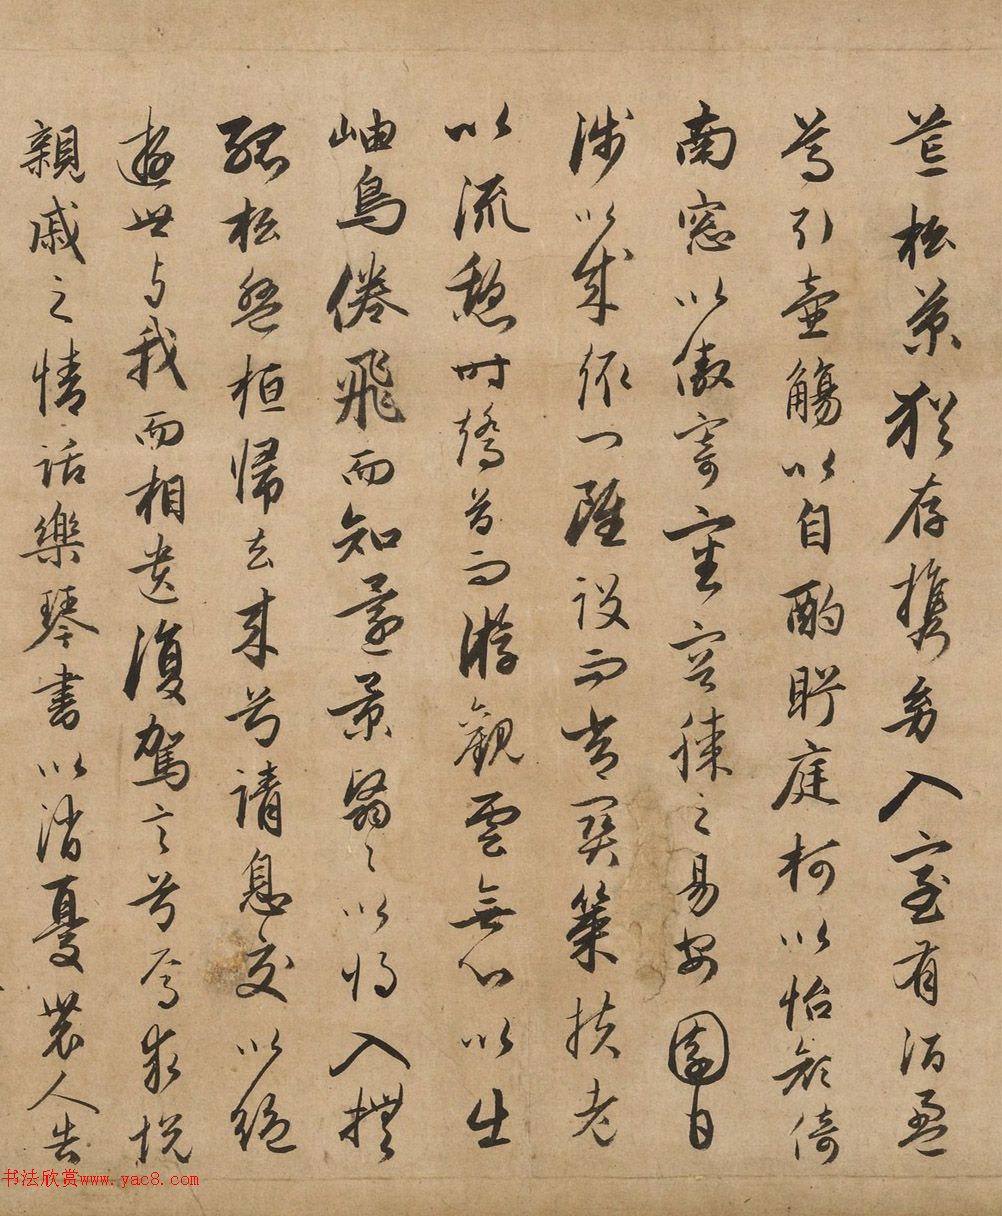 荒松菊猶存攜幼入室有酒盈
尊引壺觴以自酌眄庭柯以怡顏倚
南窓以傲寄審容膝之易安園日
涉以成趣門雖設而常關策扶老
以流憩時矯首而游觀雲無心以出
岫鳥倦飛而知還景翳々以將入撫
孤松盤桓歸去來兮請息交以絕
遊世與我而相遺復駕言兮焉求悅
親戚之情話樂琴書以消憂農人告
书法欣赏www.yac8.com